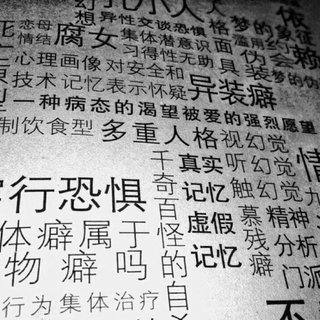 异性交谈恐惧
格梦的象征
依
恋母
情结
腐女
集体潜意识
面
伪
梦
心理画像
对安全和
习得性无助
具
装
会
赖
技术
记忆表示怀疑
异装癖
一种病态的渴望被爱的强烈愿望
制饮食型
多重人格
视幻觉
听幻觉
触幻觉
情
行恐惧
千奇百怪的自
真实
记忆
虚假
记忆
慕残癖
精神
分析
门派
体癖属于
物癖吗
行为集体治疗
不